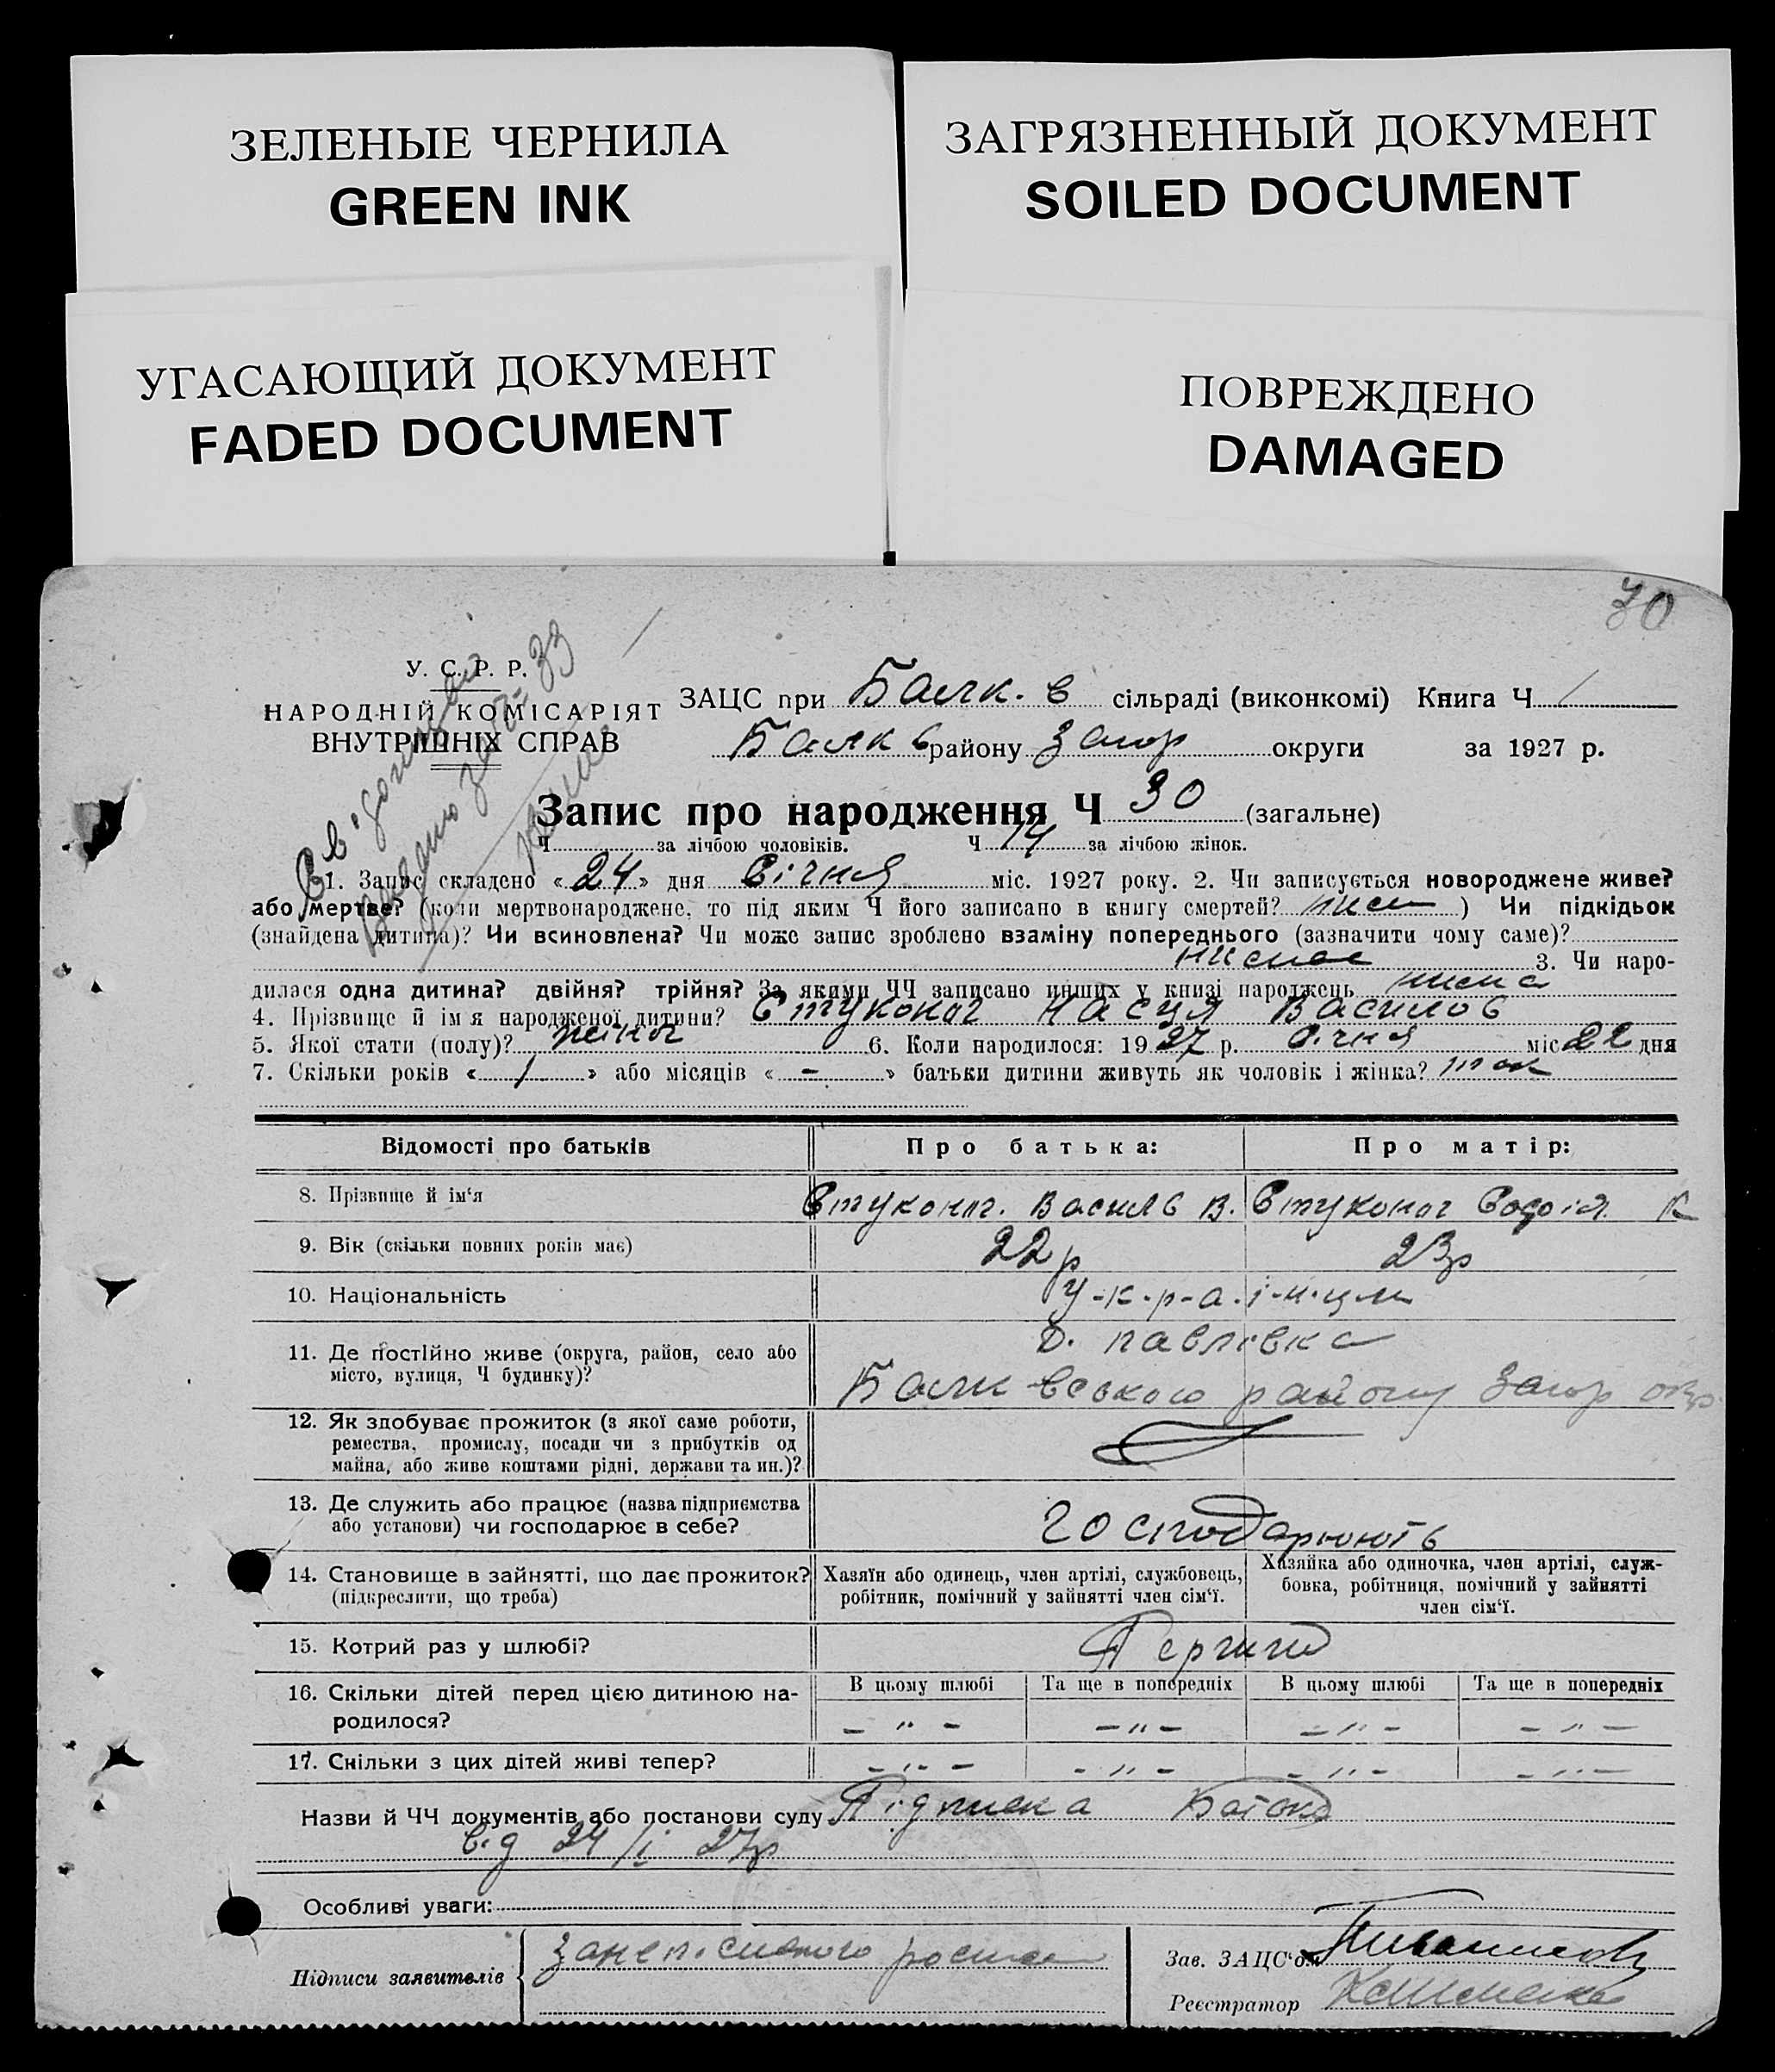 ЗЕЛЕНЫЕ ЧЕРНИЛА
GREEN INK
ЗАГРЯЗНЕННЫЙ ДОКУМЕНТ
SOILED DOCUMENT
УГАСАЮЩИЙ ДОКУМЕНТ
FADED DOCUMENT
ПОВРЕЖДЕНО
DAMAGED
30
У. С. Р. Р.
НАРОДНІЙ КОМІСАРІЯТ
ВНУТРІШНІХ СПРАВ
ЗАЦС при Балк. в сільраді (виконкомі) Книга Ч 1
Балк в району Запор округи за 1927 р.
Запис про народження Ч 30 (загальне)
Ч за лічбою чоловіків. Ч 14 за лічбою жінок.
1. Запис складено « 24 » дня Січня міс. 1927 року. 2. Чи записується новороджене живе?
або мертве? (коли мертвонароджене, то під яким Ч його записано в книгу смертей? ) Чи підкідьок
(знайдена дитина)? Чи всиновлена? Чи може запис зроблено взаміну попереднього (зазначити чому саме)?
3. Чи наро-
дилася одна дитина? двійня? трійня? За якими ЧЧ записано инших у книзі народжень
4. Прізвище й ім я народженої дитини? Стуконог Настя Васильов
5. Якої стати (полу)? жіноч 6. Коли народилося: 19 27 р. січня міс 22 дня
7. Скільки років « 1 » або місяців « - » батьки дитини живуть як чоловік і жінка? так
Відомості про батьків Про батька: Про матір:
8. Прізвище й ім'я Стуконог. Василь В. Стуконог К
9. Вік (скільки повних років має) 22 р 23 р
10. Національність У-к-р-а-ї-н-ци
11. Де постійно живе (округа, район, село або Д. Павлівка
місто, вулиця, Ч будинку)? Балковського району Запор окр.
12. Як здобуває прожиток (з якої саме роботи,
ремества, промислу, посади чи з прибутків од
майна, або живе коштами рідні, держави та ин.)?
13. Де служить або працює (назва підприємства
або установи) чи господарює в себе? господарюють
14. Становище в зайнятті, що дає прожиток? Хазяїн або одинець, член артілі, службовець, Хазяйка або одиночка, член артілі, служ-
(підкреслити, що треба) робітник, помічний у зайнятті член сім'ї. бовка, робітниця, помічний у зайнятті
член сім'ї.
15. Котрий раз у шлюбі? Перший
16. Скільки дітей перед цією дитиною на- В цьому шлюбі Та ще в попередніх В цьому шлюбі Та ще в попередніх
родилося? - " - - " - - " - - " -
17. Скільки з цих дітей живі тепер? - " - - " - - " - - " -
Назви й ЧЧ документів або постанови суду Підписка Батька
від 24/I 27р
Особливі уваги:
Підписи заявителів
Зав. ЗАЦС'ом
Реєстратор